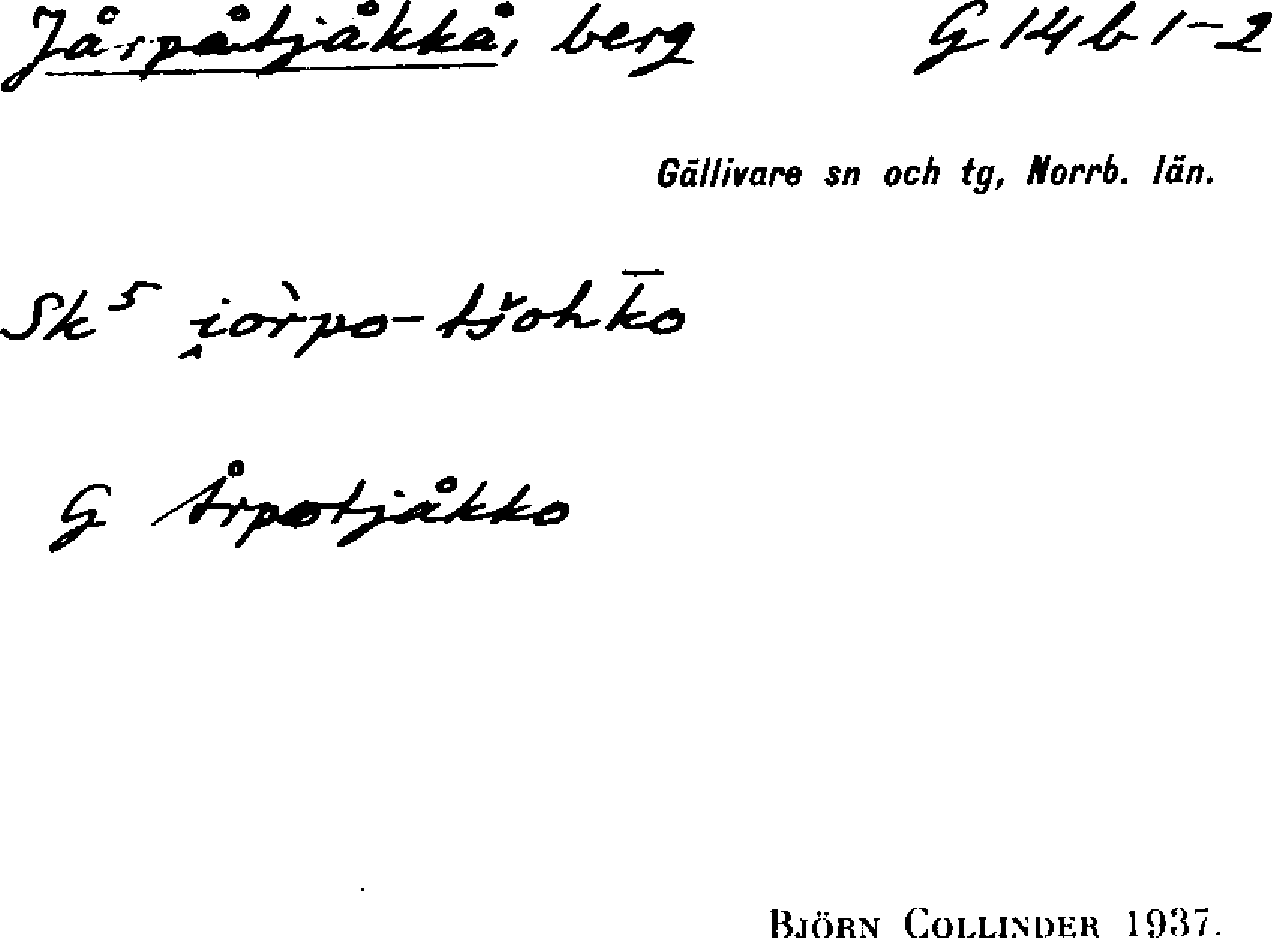 Jårpåtjåkkå, berg G 14 b 1-2
Gällivare sn och tg, Norrb. län.
Sk⁵ i̭or̀po-tšohk̄o
G Årpotjåkko
BJÖRN COLLINDER 1937.